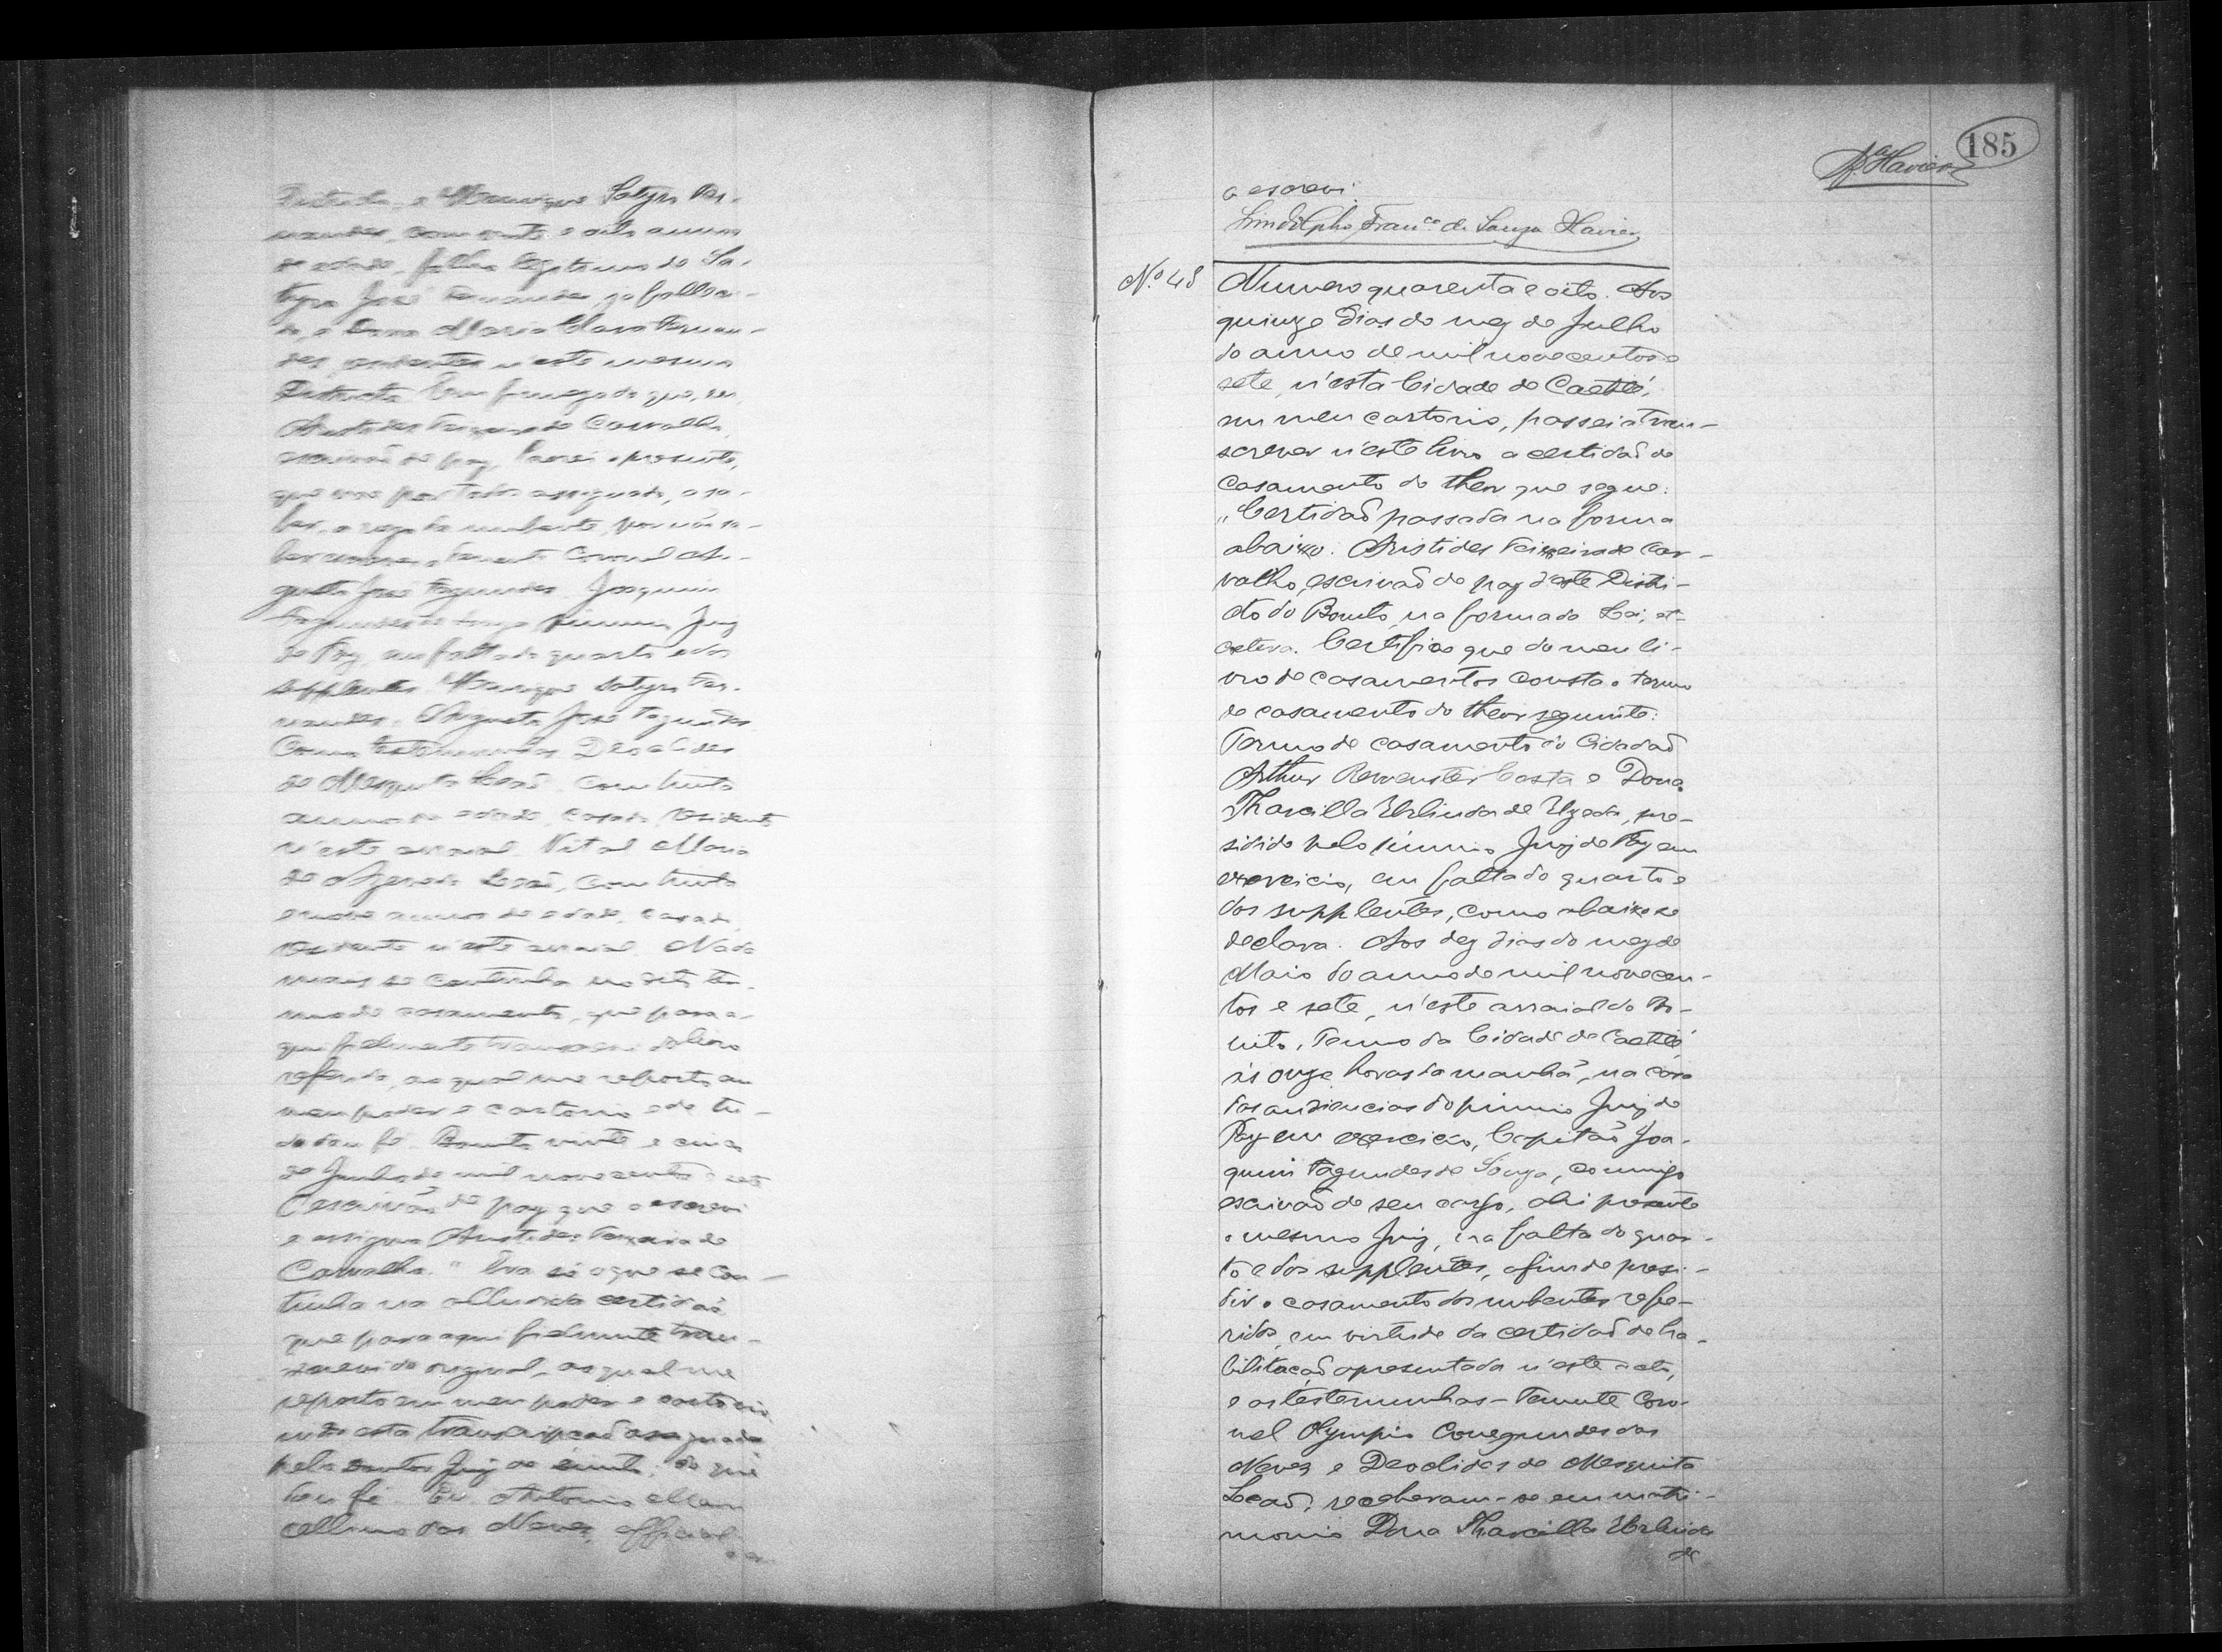 Districto, e Manrique Satyro Fer-
nandes, com vinte e oito annos
de edade, filho legitimo de Sa-
tyro José Fernandes, ja falleci-
do, e Dona Maria Clara Fernan-
des, residentes n'este mesmo
Districto. Em fé do que, eu,
Aristides Teixeira de Carvalho,
escrivaõ de paz, lavrei o presente,
que vae por todos assignado, a sa-
ber, a rogo da nubente, por não sa-
ber escrever, o Tenente Coronel Au-
gusto José Fagundes. Joaquim
Fagundes de Souza, primeiro Juiz
de Paz, em falta do quarto e dos
supplentes. Manrique Satyro Fer-
nandes. Augusto José Fagundes.
Como testemunhas Deoclides
de Mesquita Leaõ, com trinta
annos de edade, casado, residente
n'este arraial. Vital Maria
de Leaõ, com trinta
e nove annos de edade, casado,
residente n'este arraial. Nada
mais se continha no dito ter-
mo de casamento, que para a-
qui fielmente transcrevi do livro
referido, ao qual me reporto em
meu poder e cartorio e de tu-
do dou fé. Bonito vinte e cinco
de Junho de mil novecentos e sete
O escrivaõ de paz que o escrevi
e assigno Aristides Teixeira de
Carvalho." Era só o que se con-
tinha na alludida certidaõ
que para aqui fielmente trans-
crevi do original, ao qual me
reporto em meu poder e cartorio
indo esta transcripçaõ assignada
pelo doutor Juiz de direito, do que
dou fé. Eu Antonio Mar
cellino das Neves, official,
185
a escrevi
Lindolpho Franco. de Souza Xavier
No. 48
Numero quarenta e oito. Aos
quinze dias do mez de Julho
do anno de mil novecentos e
sete, n'esta Cidade de Caetité,
em meu cartorio, passei a tran-
screver n'este livro a certidaõ de
casamento do theor que segue:
"Certidaõ passada na forma
abaixo. Aristides Teixeira de Car-
valho, escrivaõ de paz d'este Distri-
cto do Bonito, na forma da Lei, et-
cetera. Certifico que do meu li-
vro de casamentos consta o termo
de casamento do theor seguinte:
Termo de casamento do Cidadaõ
Arthur Costa e Dona
Tharcilla Urbinda de Uzeda, pre-
sidido pelo primeiro Juiz de Paz em
exercicio, em falta do quarto e
dos supplentes, como abaixo se
declara. Aos dez dias do mez de
Maio do anno de mil novecen-
tos e sete, n'este arraial do Bo-
nito, Termo da Cidade de Caetité,
ás onze horas da manhã, na casa
das audiencias do primeiro Juiz de
Paz em exercicio, Capitaõ Joa-
quim Fagundes de Souza, commigo
escrivaõ de seu cargo, ahi presente
o mesmo Juiz, na falta do quar-
to e dos supplentes, afim de presi-
dir o casamento dos nubentes refe-
ridos, em virtude da certidaõ de ha-
bilitaçaõ apresentada n'este acto,
e as testemunhas - Tenente Coro-
nel Olympio Conegundes das
Neves e Deoclides de Mesquita
Leaõ; receberam-se em matri-
monio Dona Tharcilla Urbinda
de